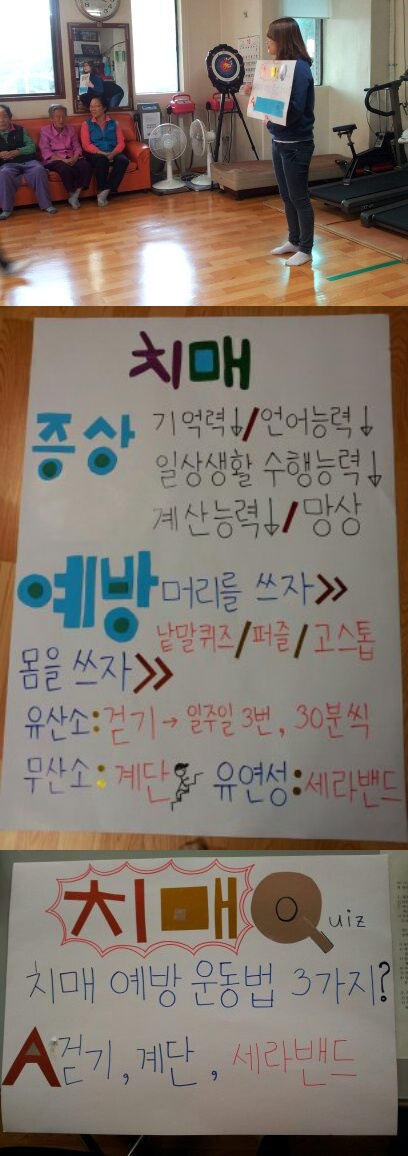 치매
증상 기억력↓/언어능력↓
일상생활 수행능력↓
계산능력↓/망상
예방 머리를 쓰자>>
낱말퀴즈/퍼즐/고스톱
몸을 쓰자>>
유산소:걷기→일주일 3번, 30분씩
무산소:계단 유연성:세라밴드
치매 Quiz
치매 예방 운동법 3가지?
A 걷기, 계단, 세라밴드